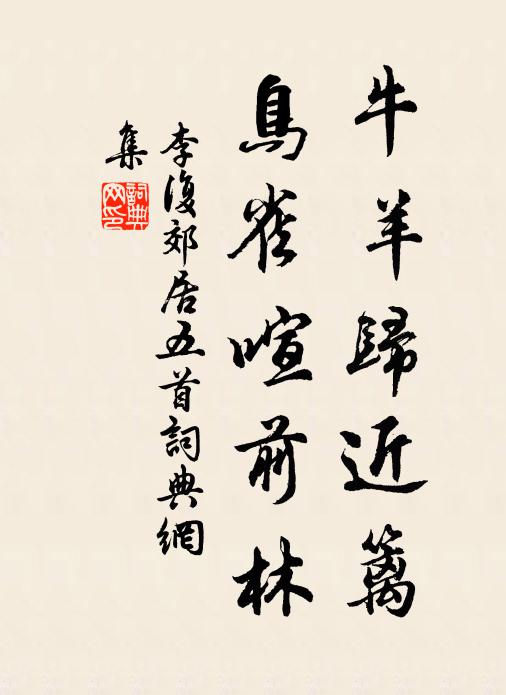 牛羊歸近籬
鳥雀喧前林
李復郊居五首詞典網
集
詞典
网印